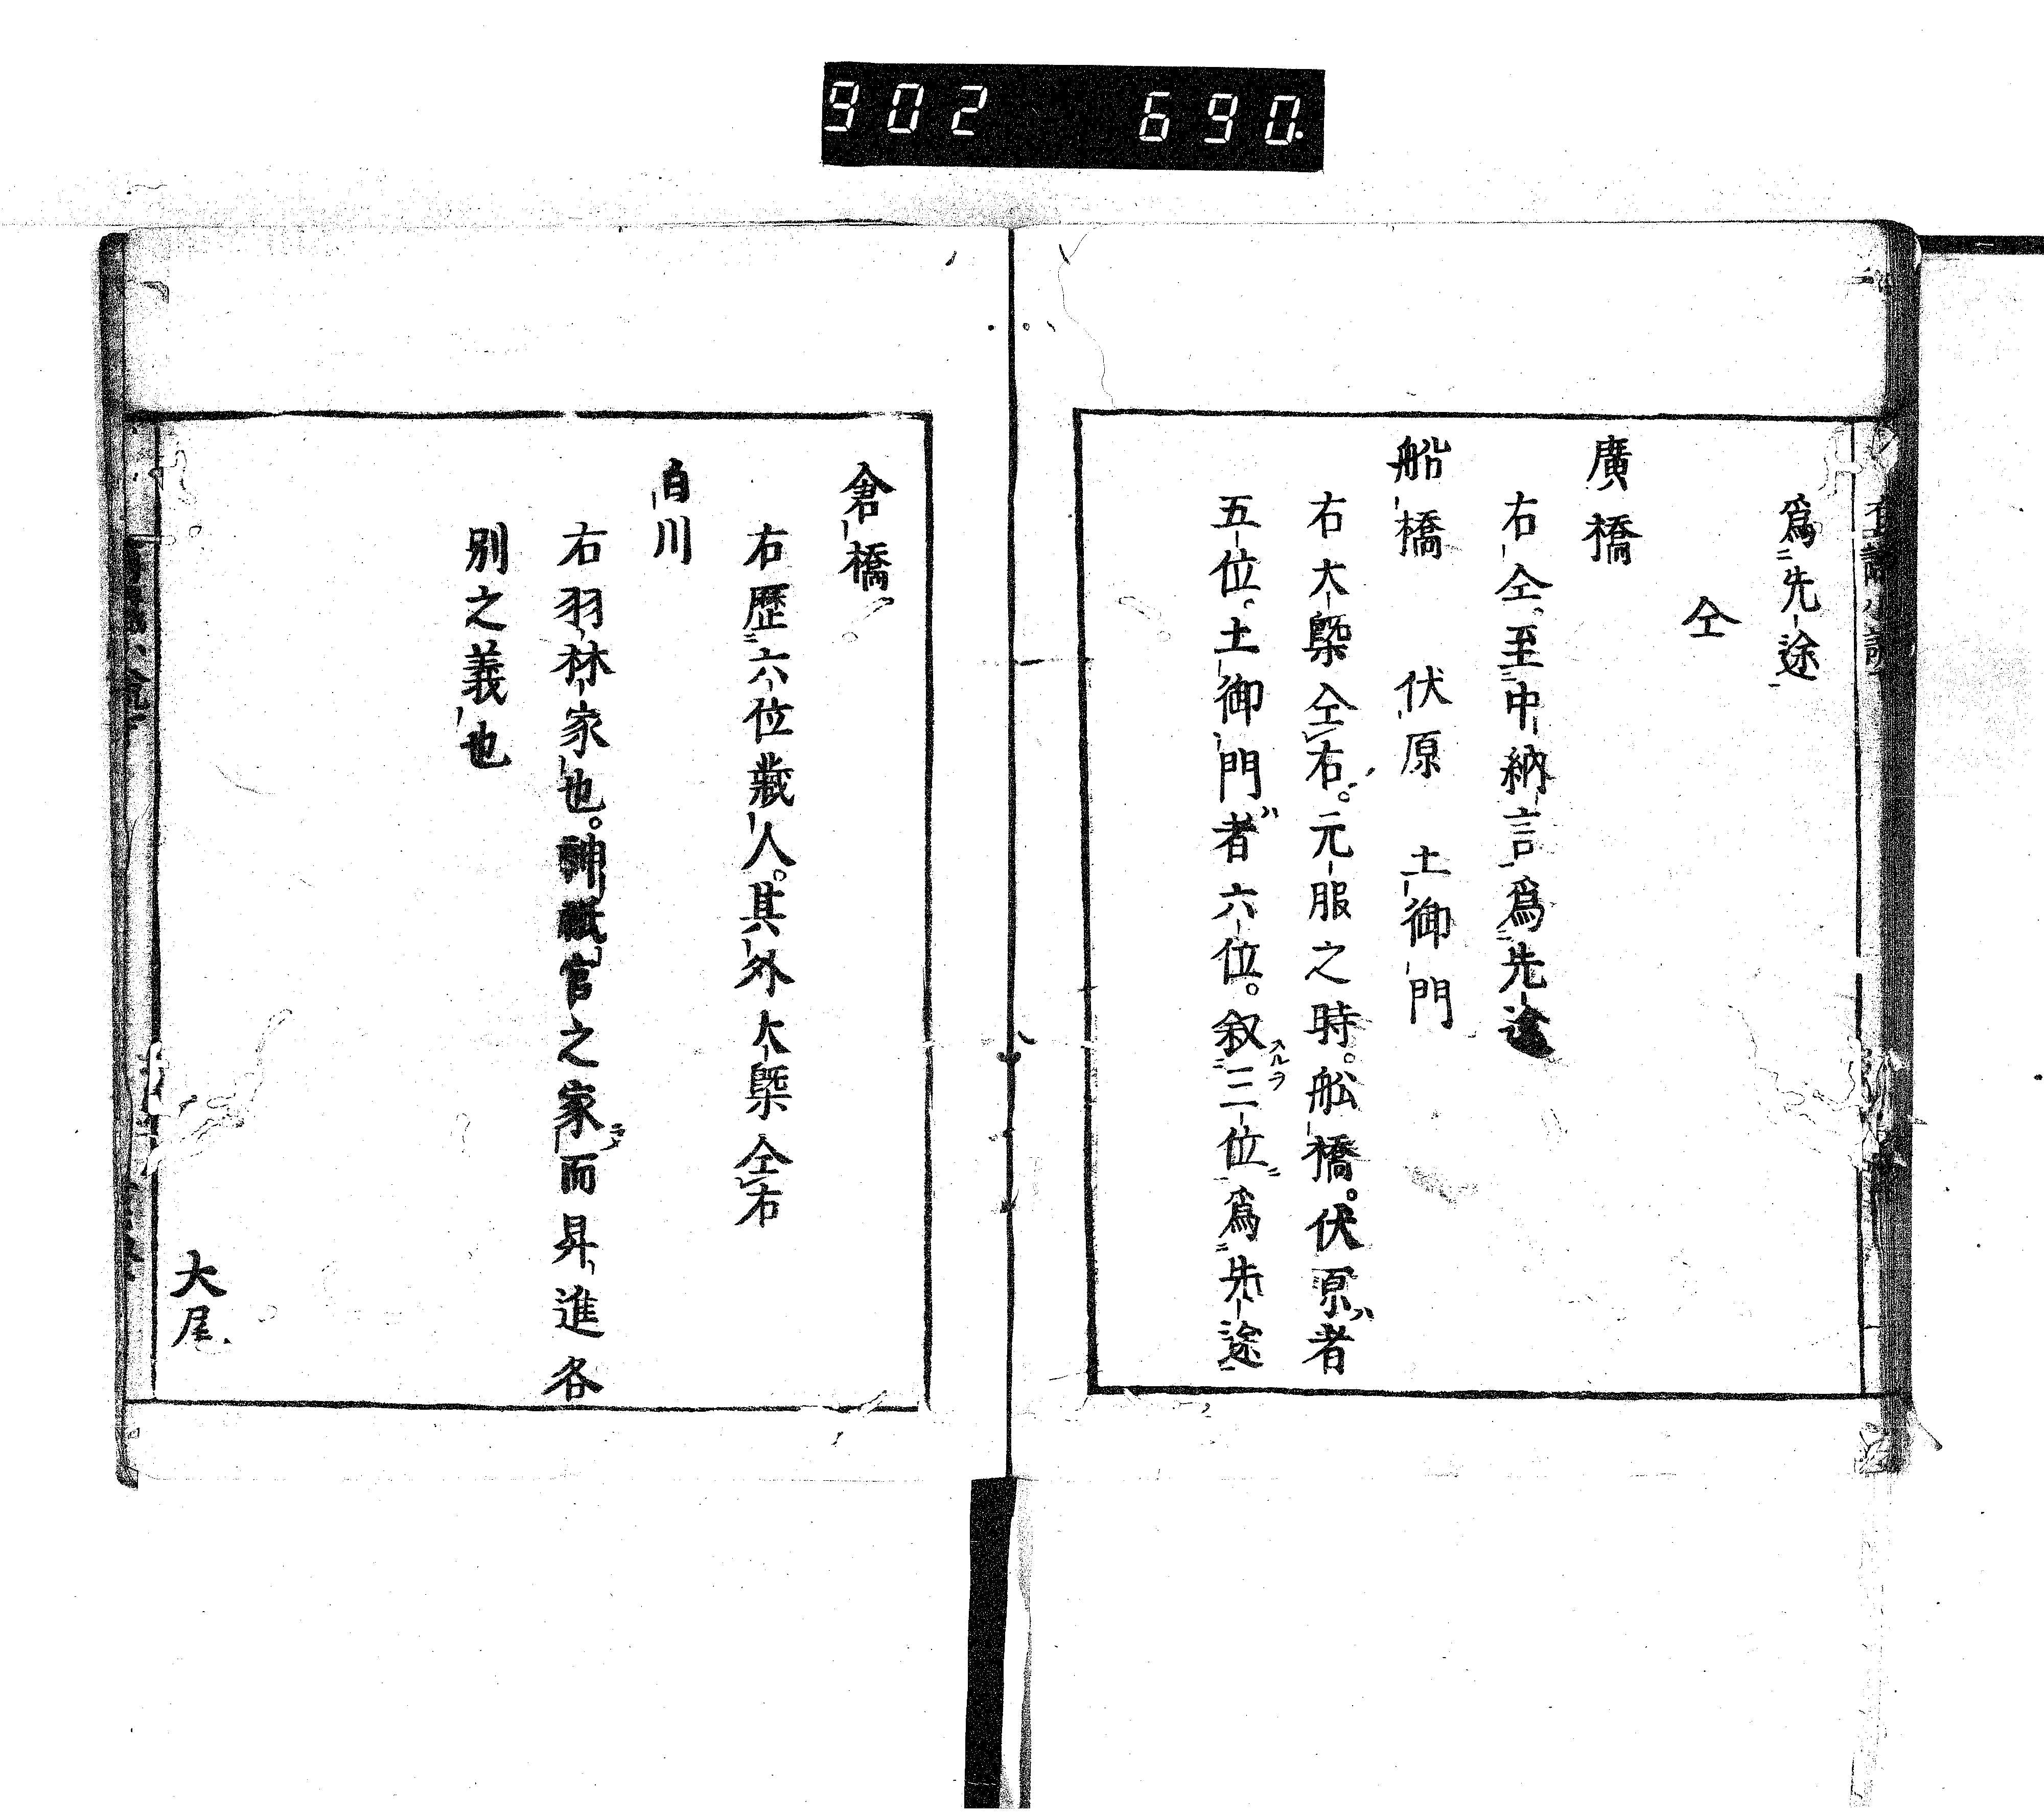 902 690.
爲先途
仝
廣橋
右仝。至中納言爲先途
船橋 伏原 土御門
右大槩仝右。元服之時。舩橋。伏原者
五位。土御門者六位。叙三位爲先途
倉橋
右歷六位藏人。其外大槩仝右
白川
右羽林家也。神祇官之家而昇進各
別之義也
大尾